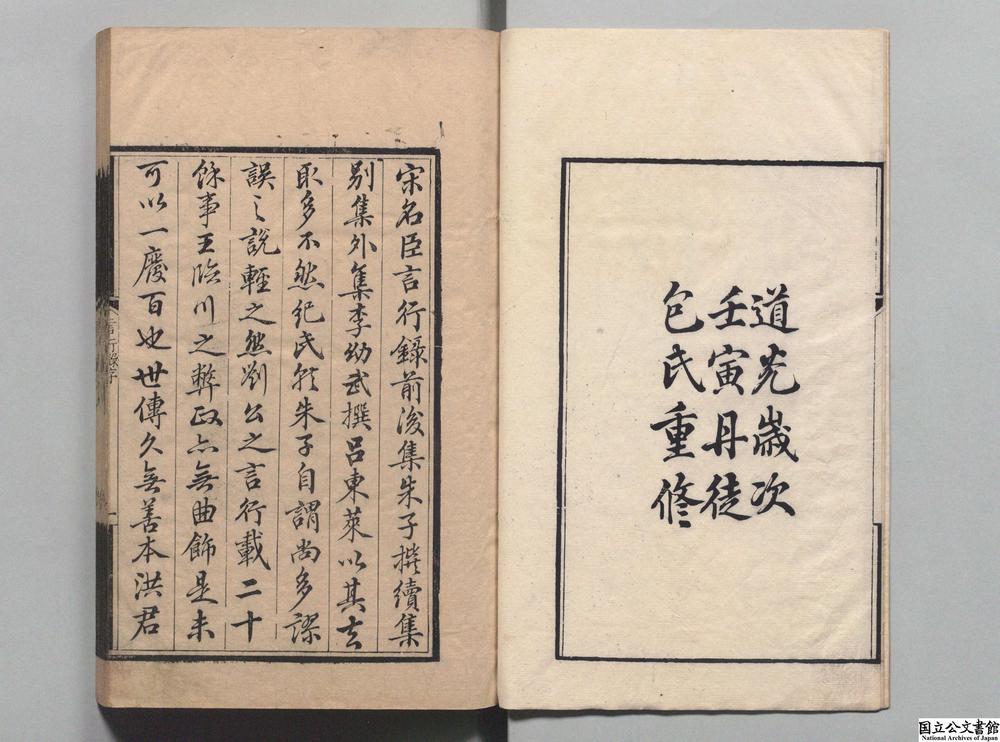 道光歲次
壬寅丹徒
包氏重修
宋名臣言行錄前後集朱子撰續集
別集外集李幼武撰呂東萊以其去
取多不然紀氏能朱子自謂尚多謬
誤之說輕之然劉公之言行載二十
餘事王臨川之弊政亦無曲飾是未
可以一廢百也世傳久無善本洪君
言行錄序
国立公文書館
National Archives of Japan